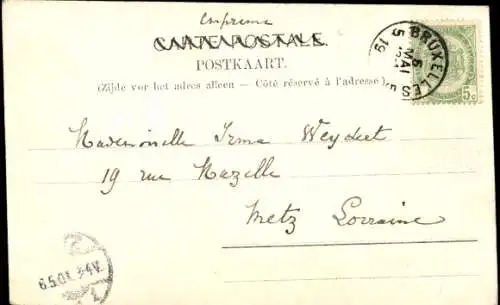 Imprime
CARTE POSTALE.
POSTKAART.
(Zijde voor het adres alleen — Côté réservé à l'adresse)
BRUXELLES
5
MAI
5 19
5c
Mademoiselle Irma Weydert
19 rue Mazelle
Metz Lorraine